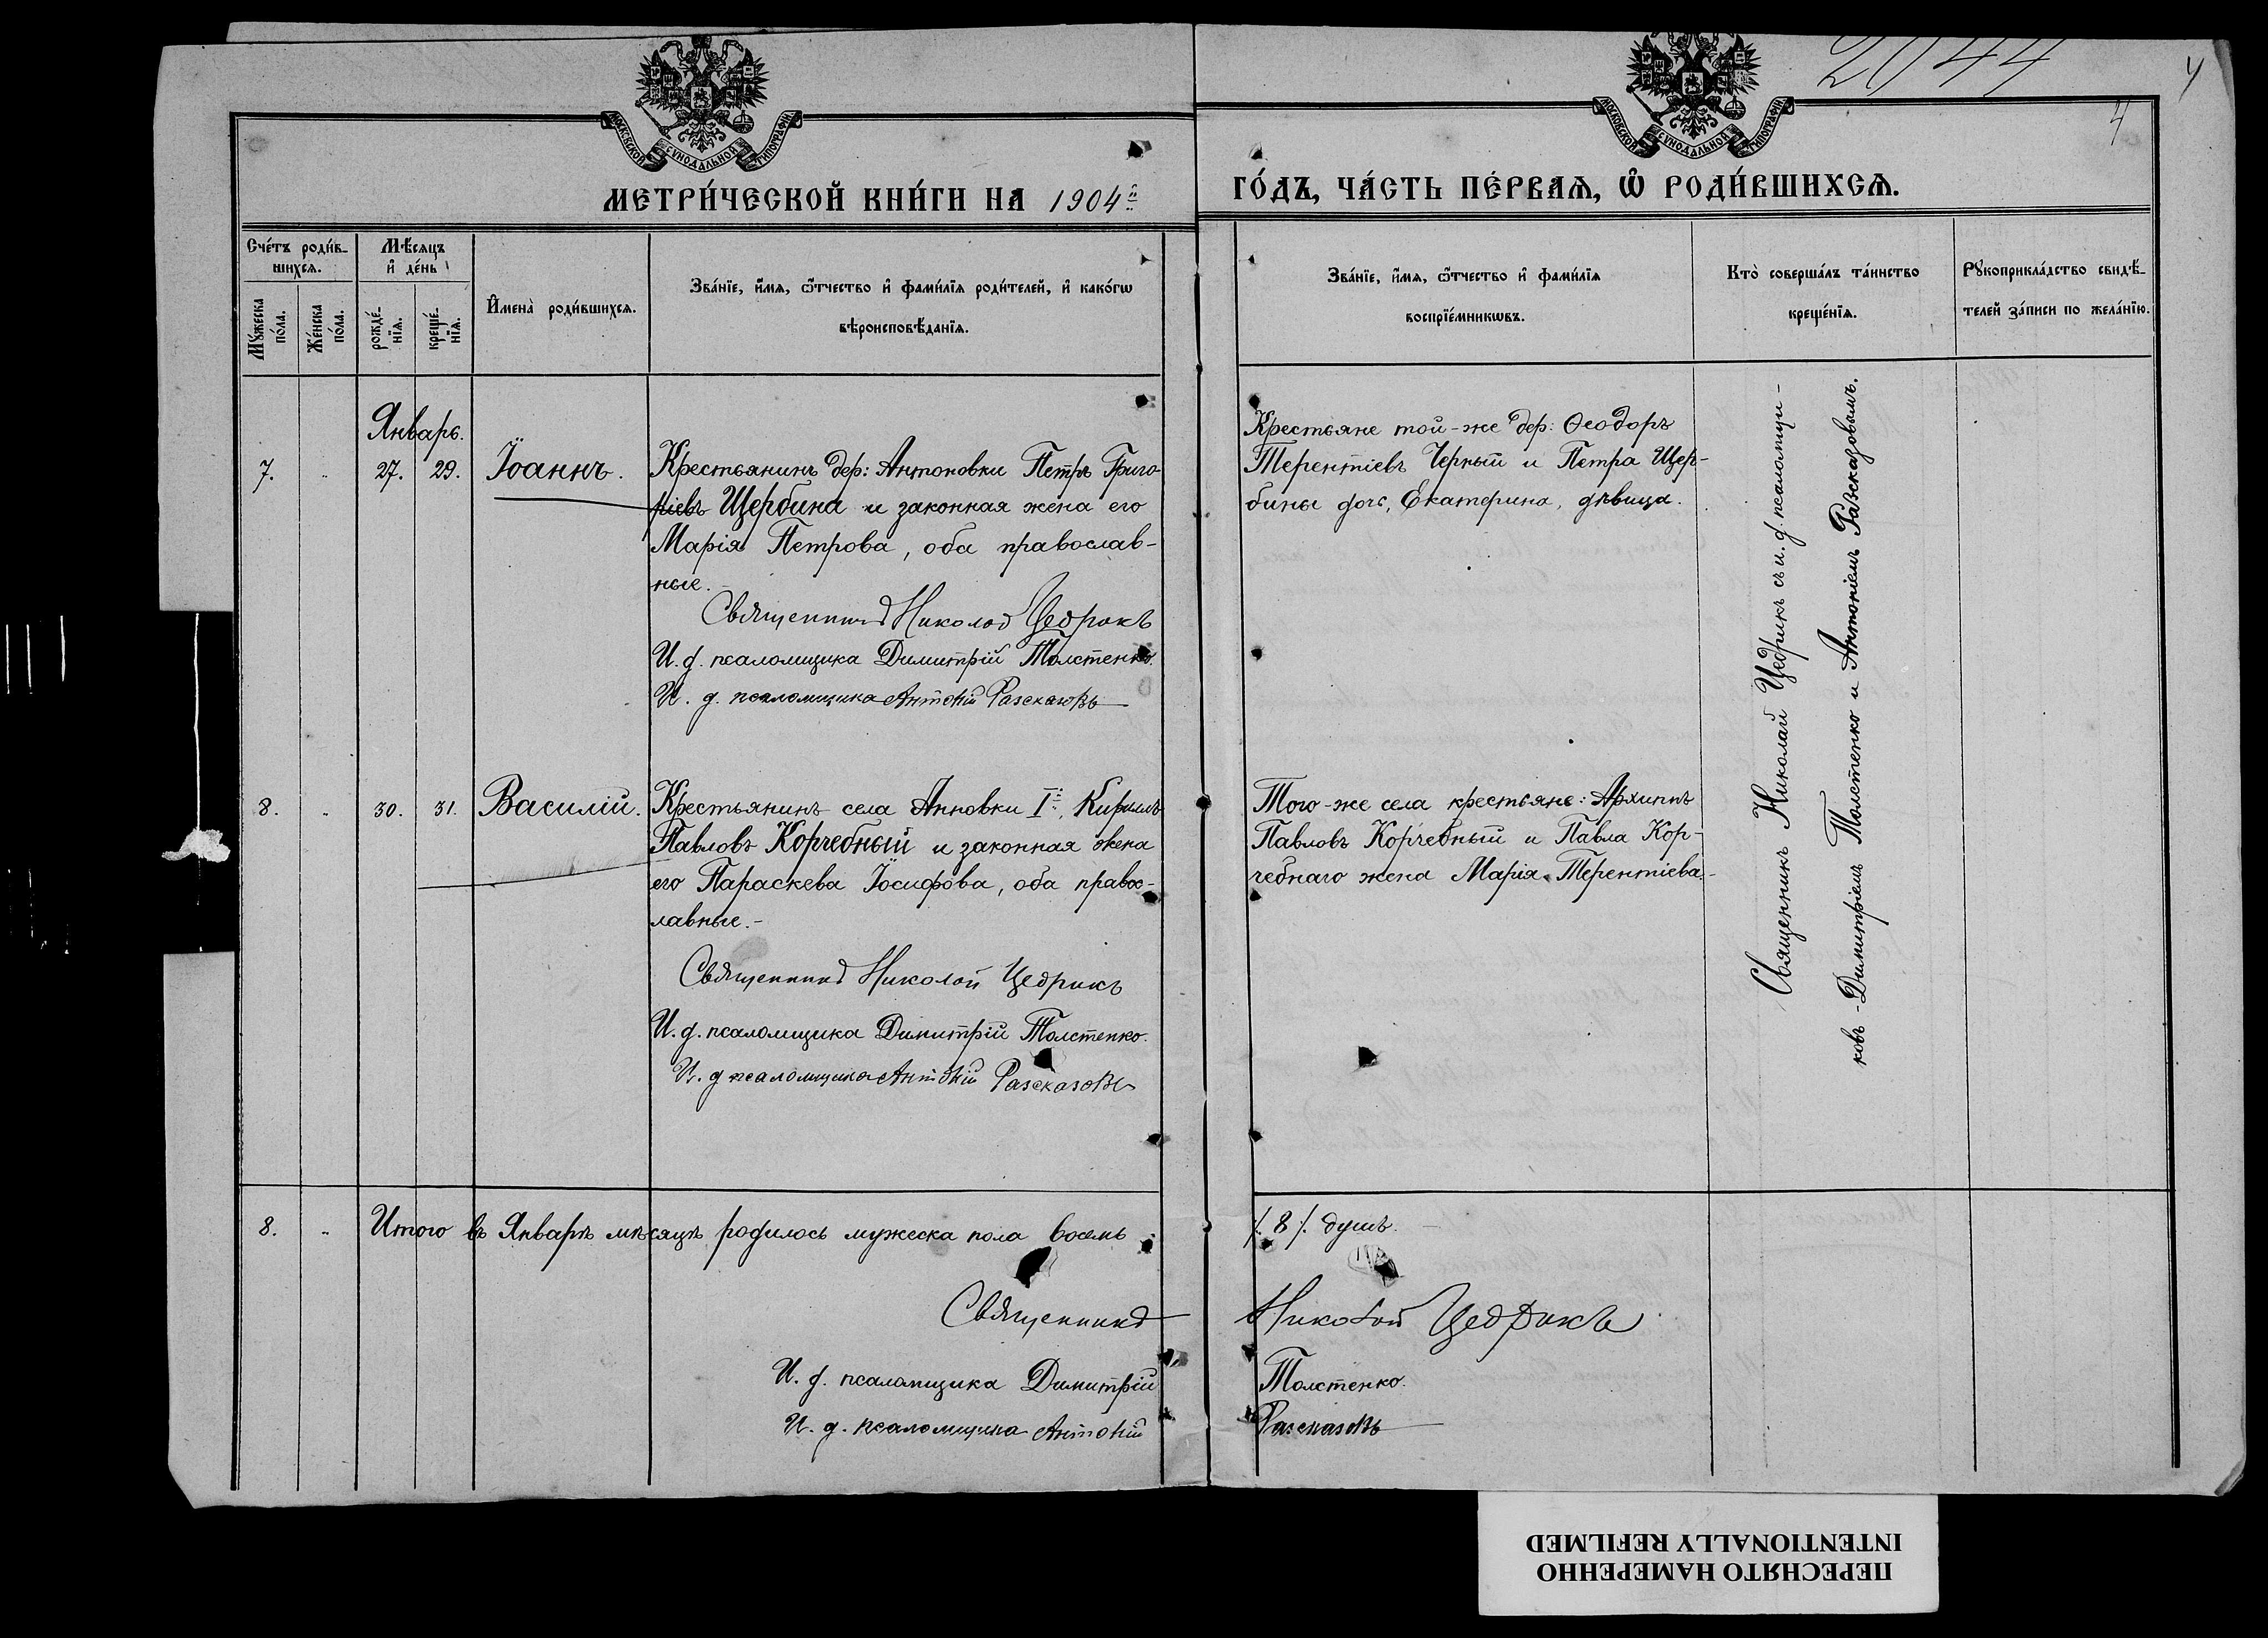 МОСКОВСКОЙ СѴНОДАЛЬНОЙ ТИПОГРАФІИ
МОСКОВСКОЙ СѴНОДАЛЬНОЙ ТИПОГРАФІИ
2044
4
4
МЕТРИ́ЧЕСКОЙ КНИ́ГИ НА 1904й
ГО́ДЪ, ЧА́СТЬ ПЕ́РВАѦ, Ѡ҆ РОДИ́ВШИХСѦ.
Сче́тъ роди́в-
шихсѧ.
Мѣ́сяцъ
и҆ де́нь
Мꙋ́жеска
по́ла.
Же́нска
по́ла.
рожде́-
нїѧ.
креще́-
нїѧ.
И҆мена̀ роди́вшихсѧ.
Зва́нїе, и҆́мѧ, ѻ҆́тчество и҆ фами́лїѧ роди́телей, и҆ како́гѡ
вѣроисповѣ́данїѧ.
Зва́нїе, и҆́мѧ, ѻ҆́тчество и҆ фами́лїѧ
воспрїе́мникѡвъ.
Кто̀ соверша́лъ та́инство
креще́нїѧ.
Рꙋкоприкла́дство свидѣ́-
телей за́писи по жела́нїю.
Январь.
7. „ 27. 29. Іоаннъ.
Крестьянинъ дер: Антоновки Петръ Григо-
ріевъ Щербина и законная жена его
Марія Петрова, оба православ-
ные.
Священникъ Николай Цедрикъ
И. д. псаломщика Димитрій Толстенко.
И. д. псаломщика Антоній Разсказовъ
Крестьяне той-же дер: Ѳеодоръ
Терентіевъ Черный и Петра Щер-
бины дочь, Екатерина, дѣвица.
Священникъ Николай Цедрикъ съ и. д. псаломщи-
ковъ - Димитріемъ Толстенко и Антоніемъ Разсказовымъ.
8. „ 30. 31. Василій.
Крестьянинъ села Анновки I й, Кириллъ
Павловъ Корчебный и законная жена
его Параскева Іосифова, оба правос-
лавные.-
Священникъ Николай Цедрикъ
И. д. псаломщика Димитрій Толстенко.
И. д псаломщика Антоній Разсказовъ
Того-же села крестьяне: Архиппъ
Павловъ Корчебный и Павла Кор-
чебнаго жена Марія Терентіева.-
8. „ Итого въ Январѣ мѣсяцѣ родилось мужеска пола восемь
/. 8 /. душъ. -
Священникъ Николай Цедрикъ
И. д. псаломщика Димитрій Толстенко.
И. д. псаломщика Антоній Разсказовъ
ПЕРЕСНЯТО НАМЕРЕННО
INTENTIONALLY REFILMED